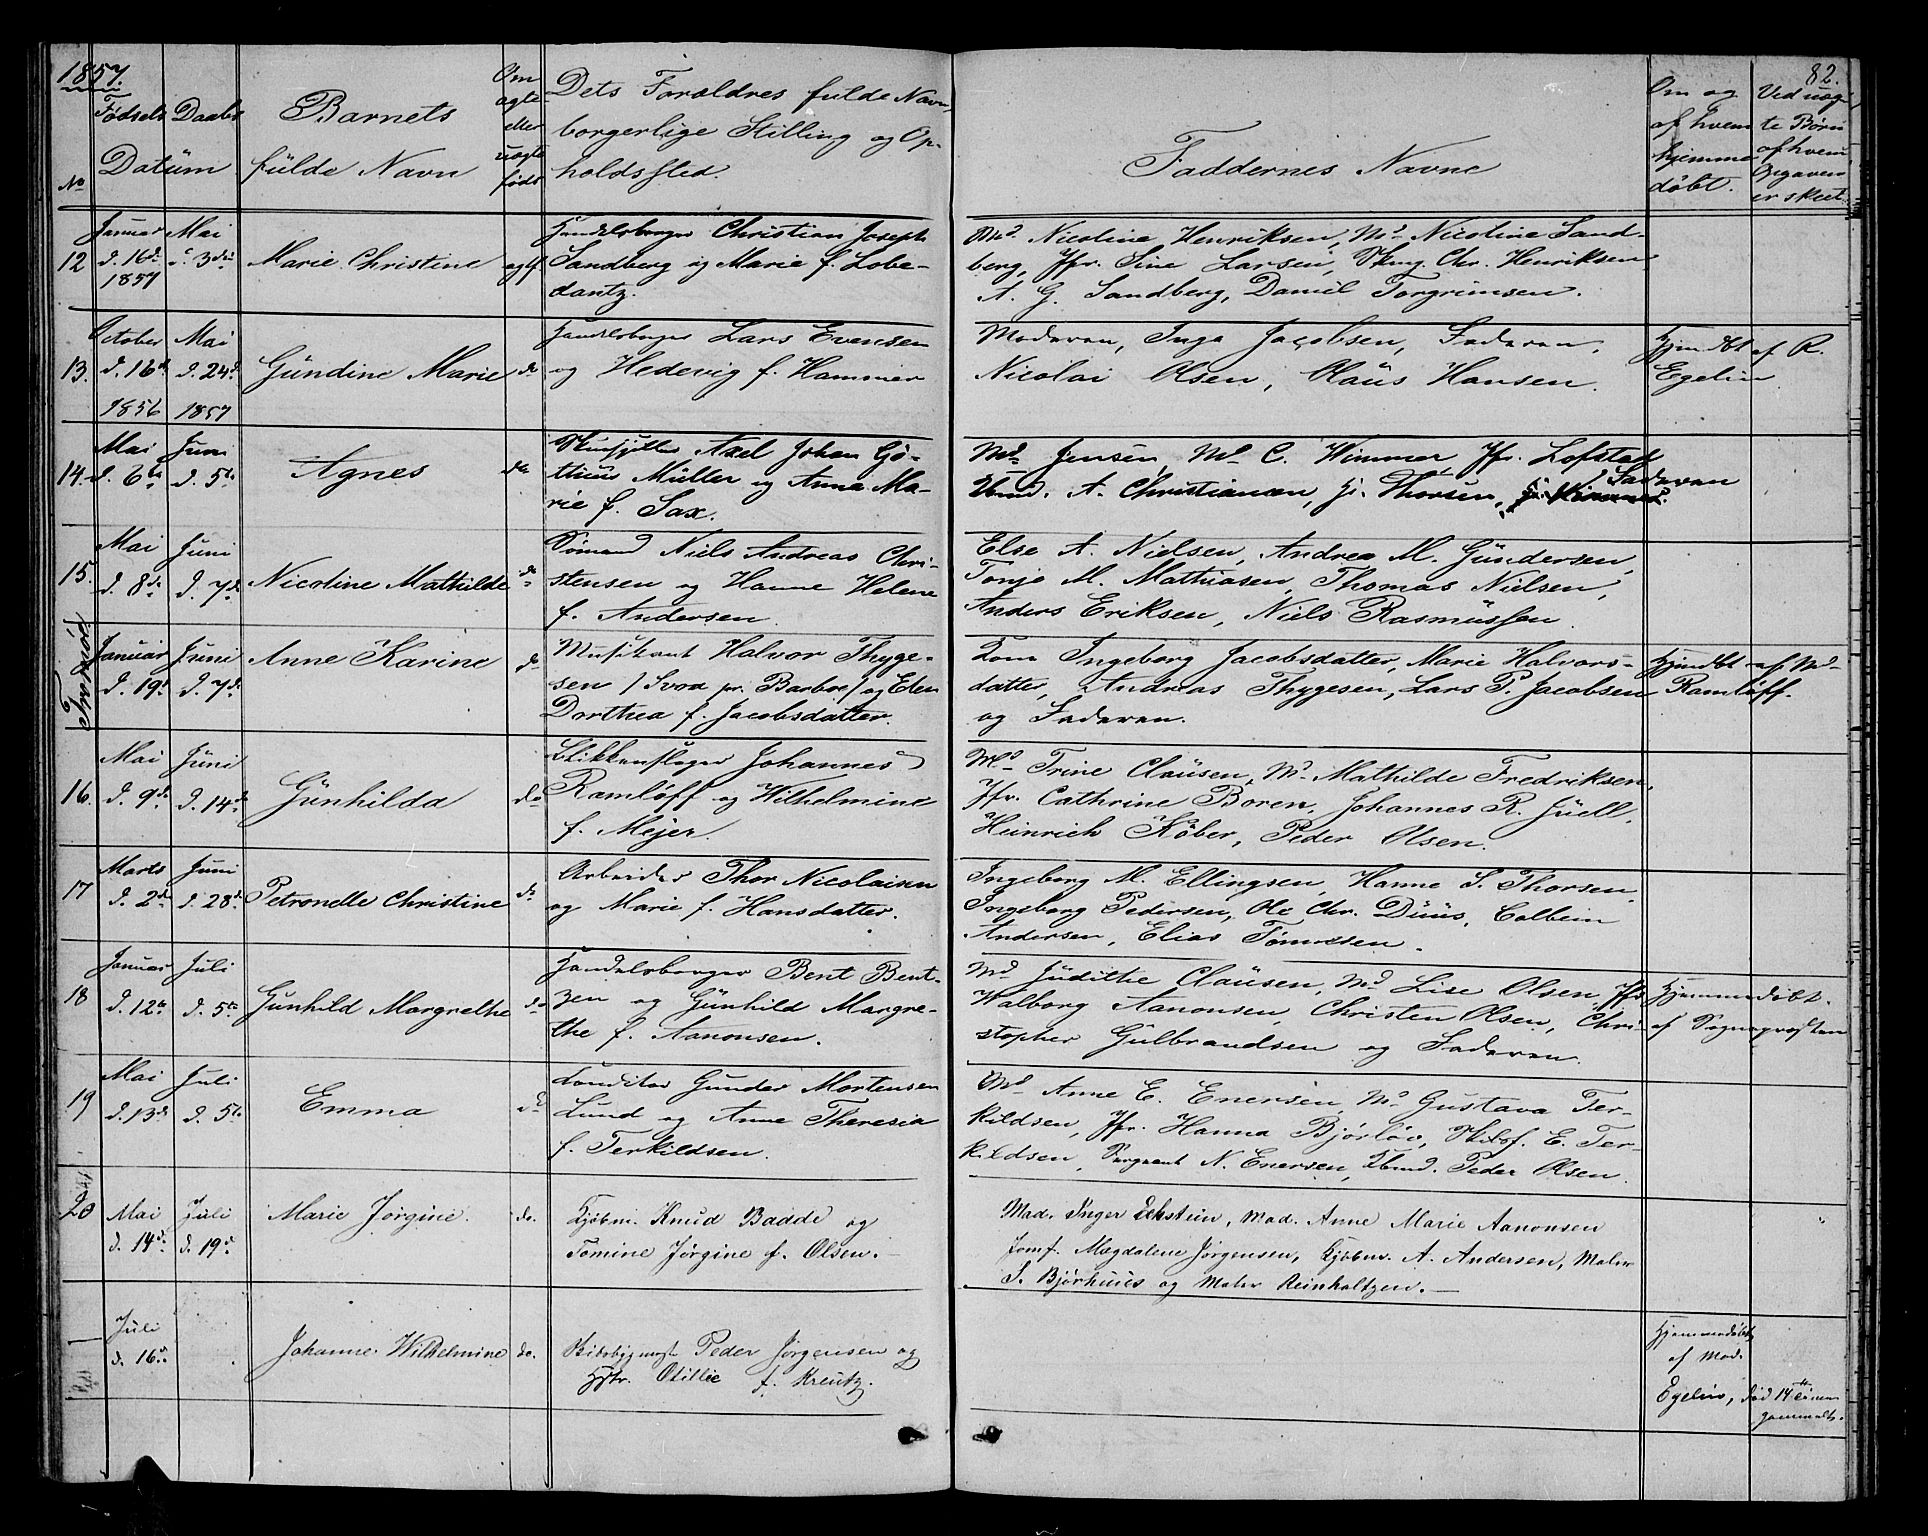 1857.
82.
No
Fødsels
Daabs
Datum
Barnets
fulde Navn
Om
ægte
eller
uægte
født
Dets Forældres fulde Navn
borgerlige Stilling og Op-
holdssted.
Faddernes Navne
Om og
af hvem
hjemme
døbt.
Ved uæg-
te Børn
af hvem
Opgaven
er skeet.
12
Januar
d. 16de
1857
Mai
d. 3die
Marie Christine
ægtf.
Handelsborger Christian Joseph
Sandberg og Marie f. Lobe-
dantz.
Md. Nicoline Henriksen, Md. Nicoline Sand-
berg, Jfr. Sine Larsen, Chr. Henriksen
A. G. Sandberg, Daniel Torgrimsen.
13.
October
d. 16de
1856
Mai
d. 24de
1857
Gundine Marie
do
Handelsborger Lars Evensen
og Hedevig f. Hammer
Moderen, Inga Jacobsen, Faderen,
Nicolai Olsen, Olaus Hansen.
Hjemdøbt af R.
Egelin
14.
Mai
d. 6te
Juni
d. 5te
Agnes
do
Axel Johan Gø-
thius Müller og Anna Ma-
rie f. Sax.
Md. Jensen, Md. C. Wimmer Jfr. Lofstad
A. Christiansen, H. Thorsen, Faderen
15.
Mai
d. 8de
Juni
d. 7de
Nicoline Mathilde
do
Sømand Niels Andreas Chri-
stensen og Hanne Helene
f. Andersen.
Else A. Nielsen, Andrea M. Gundersen,
Tonje M. Mathiasen, Thomas Nielsen,
Anders Eriksen, Niels Rasmussen.
Januar
d. 19de
Juni
d. 7de
Anne Karine
do
Musikant Halvor Thyge-
sen / Svoa pr. Barboe / og Elen
Dorthea f. Jacobsdatter.
Kone Ingeborg Jacobsdatter, Marie Halvors-
datter, Andreas Thygesen, Lars P. Jacobsen
og Faderen.
Hjemdøbt af Md
Ramløff.
16.
Mai
d. 9de
Juni
d. 14de
Gunhilda
do
Blikkenslager Johannes
Ramløff og Wilhelmine
f. Mejer.
Md. Trine Clausen, Md. Mathilde Fredriksen,
Jfr. Cathrine Boren, Johannes R. Juell,
Heinrich Køber, Peder Olsen.
17
Marts
d. 2den
Juni
d. 28de
Petronelle Christine
do
Arbeider Thor Nicolaisen
og Marie f. Hansdatter.
Ingeborg M. Ellingsen, Hanne S. Thorsen,
Ingeborg Pedersen, Ole Chr. Duus, Colbein
Andersen, Elias Tønnesen.
18
Januar
d. 12te
Juli
d. 5te
Gunhild Margrethe
do
Handelsborger Bent Bent-
zen og Gunhild Margre-
the f. Aanonsen.
Md. Judithe Clausen, Md. Lise Olsen, Jfr.
Walborg Aanonsen, Christen Olsen, Chri-
stopher Gulbrandsen og Faderen.
Hjemmedøbt.
af Sognepræsten
19
Mai
d. 13de
Juli
d. 5te
Emma
do
Conditor Gunder Mortensen
Lund og Anne Theresia
f. Terkildsen.
Md. Anne E. Enersen, Md. Gustava Ter-
kildsen, Jfr. Hanna Bjørløv, Skibsf. E. Ter-
kildsen, Sergeant N. Enersen, Peder Olsen.
20
Mai
d. 14de
Juli
d. 19de
Marie Jørgine.
do.
Kjøbm. Knud Baade og
Tomine Jørgine f. Olsen.
Mad. Inger Eckstein, Mad. Anne Marie Aanonsen
Jomf. Magdalene Jørgensen, Kjøbm. A. Andersen, Maler
S. Bjørhuus og Maler Reinholtzen.
Juli
d. 16de
Johanne Wilhelmine
do.
Peder Jørgensen og
Hstr. Otillie f. Kreutz.
Hjemmedøbt
af Mad.
Egelin, død 14
gammelt.